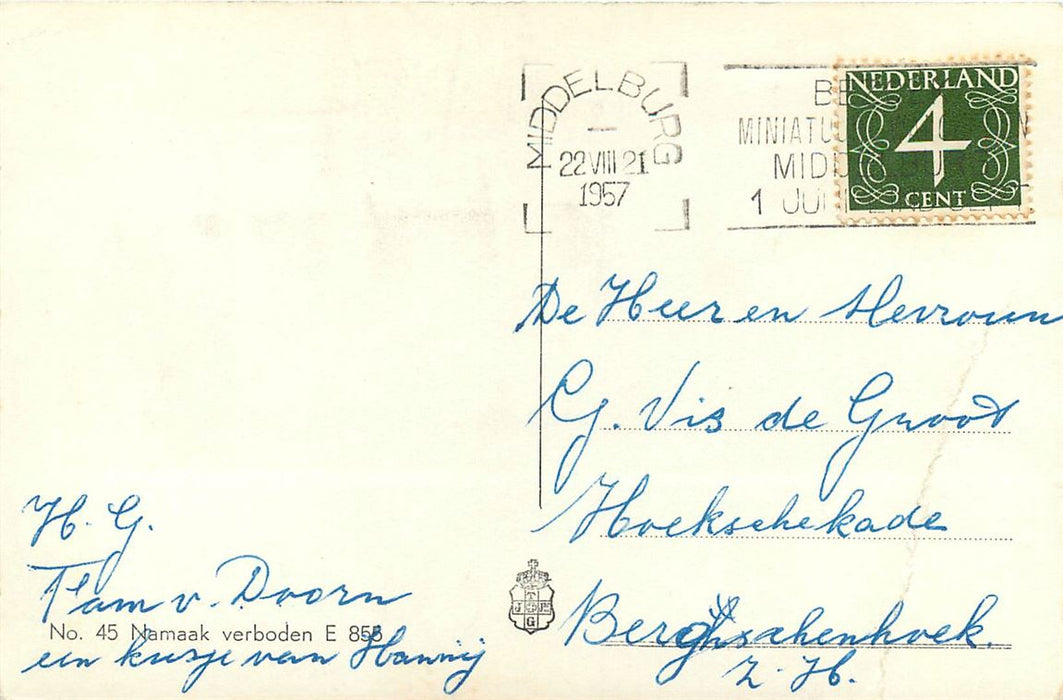 MIDDELBURG
22 VIII 21
1957
MINIATU
MIDD
1 JU
NEDERLAND
4
CENT
De Heer en Mevrouw
G. Vis de Groot
Hoekschekade
Bergschenhoek.
Z. H.
H. G.
Fam v. Doorn
een kusje van Hannij
No. 45 Namaak verboden E 855
T
J E
G